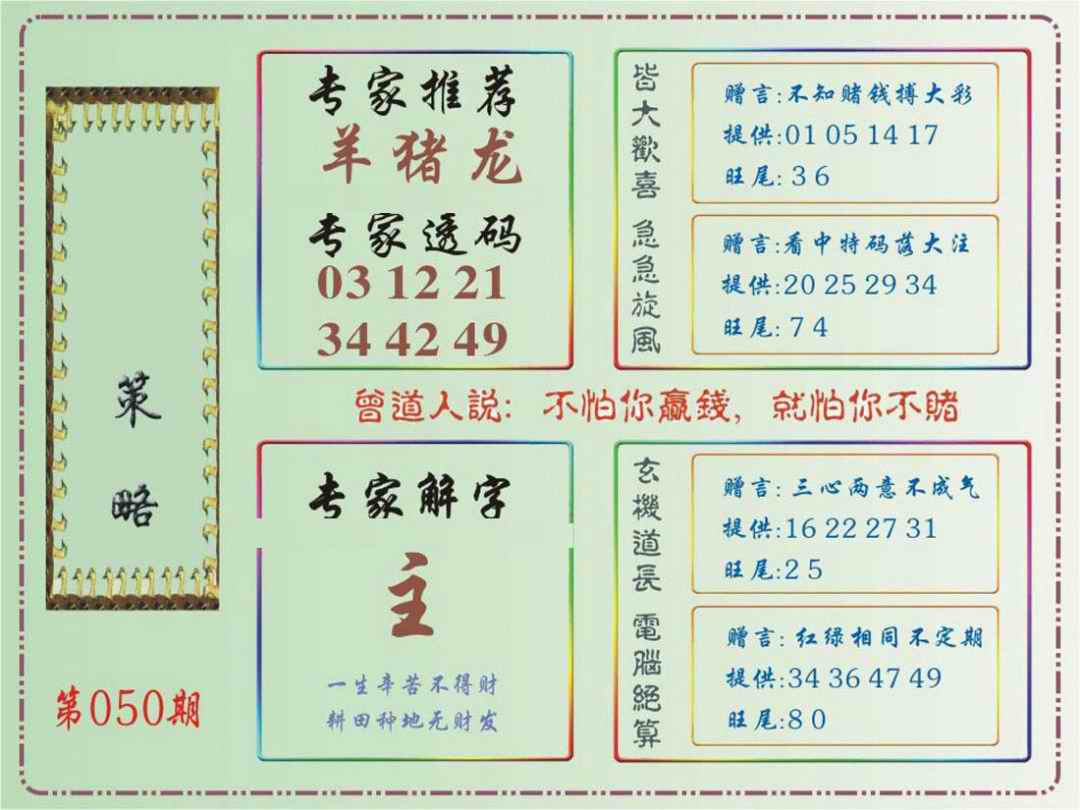 策略
第050期
专家推荐
羊猪龙
专家透码
03 12 21
34 42 49
皆大歡喜
赠言:不知赌钱搏大彩
提供:01 05 14 17
旺尾: 3 6
急急旋風
赠言:看中特码落大注
提供:20 25 29 34
旺尾: 7 4
曾道人説: 不怕你贏錢, 就怕你不賭
专家解字
主
一生辛苦不得财
耕田种地无财发
玄機道長
赠言: 三心两意不成气
提供:16 22 27 31
旺尾:2 5
電腦絕算
赠言: 红绿相同不定期
提供:34 36 47 49
旺尾:8 0